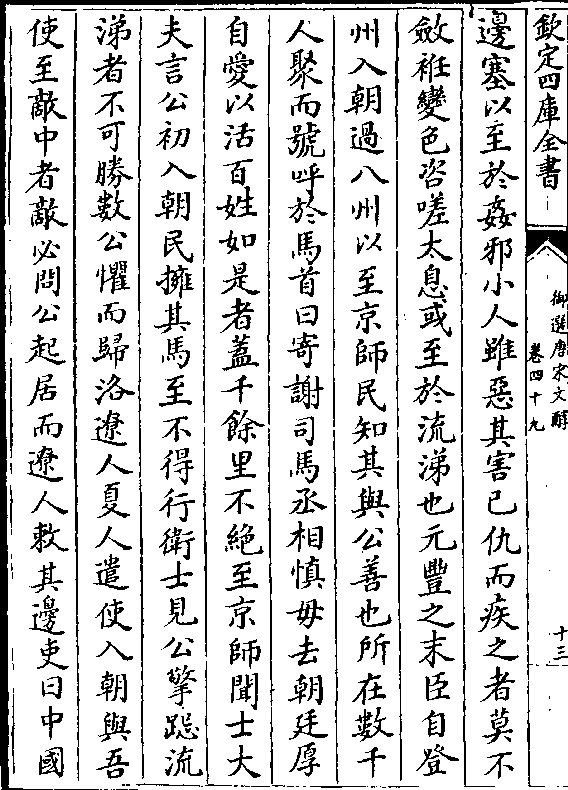 欽定四庫全書
御選唐宋文醇
卷四十九
十三
邊塞以至於姦邪小人雖惡其害已仇而疾之者莫不
斂袵變色咨嗟太息或至於流涕也元豐之末臣自登
州入朝過八州以至京師民知其與公善也所在數千
人聚而號呼於馬首曰寄謝司馬丞相慎毋去朝廷厚
自愛以活百姓如是者蓋千餘里不絶至京師聞士大
夫言公初入朝民擁其馬至不得行衛士見公擎跽流
涕者不可勝數公懼而歸洛遼人夏人遣使入朝與吾
使至敵中者敵必問公起居而遼人敕其邊吏曰中國